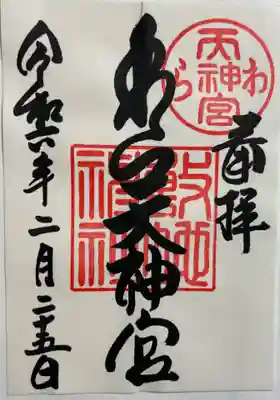 奉拝
わら天神宮
わら天神宮
敷地
神社
令和六年二月二十五日